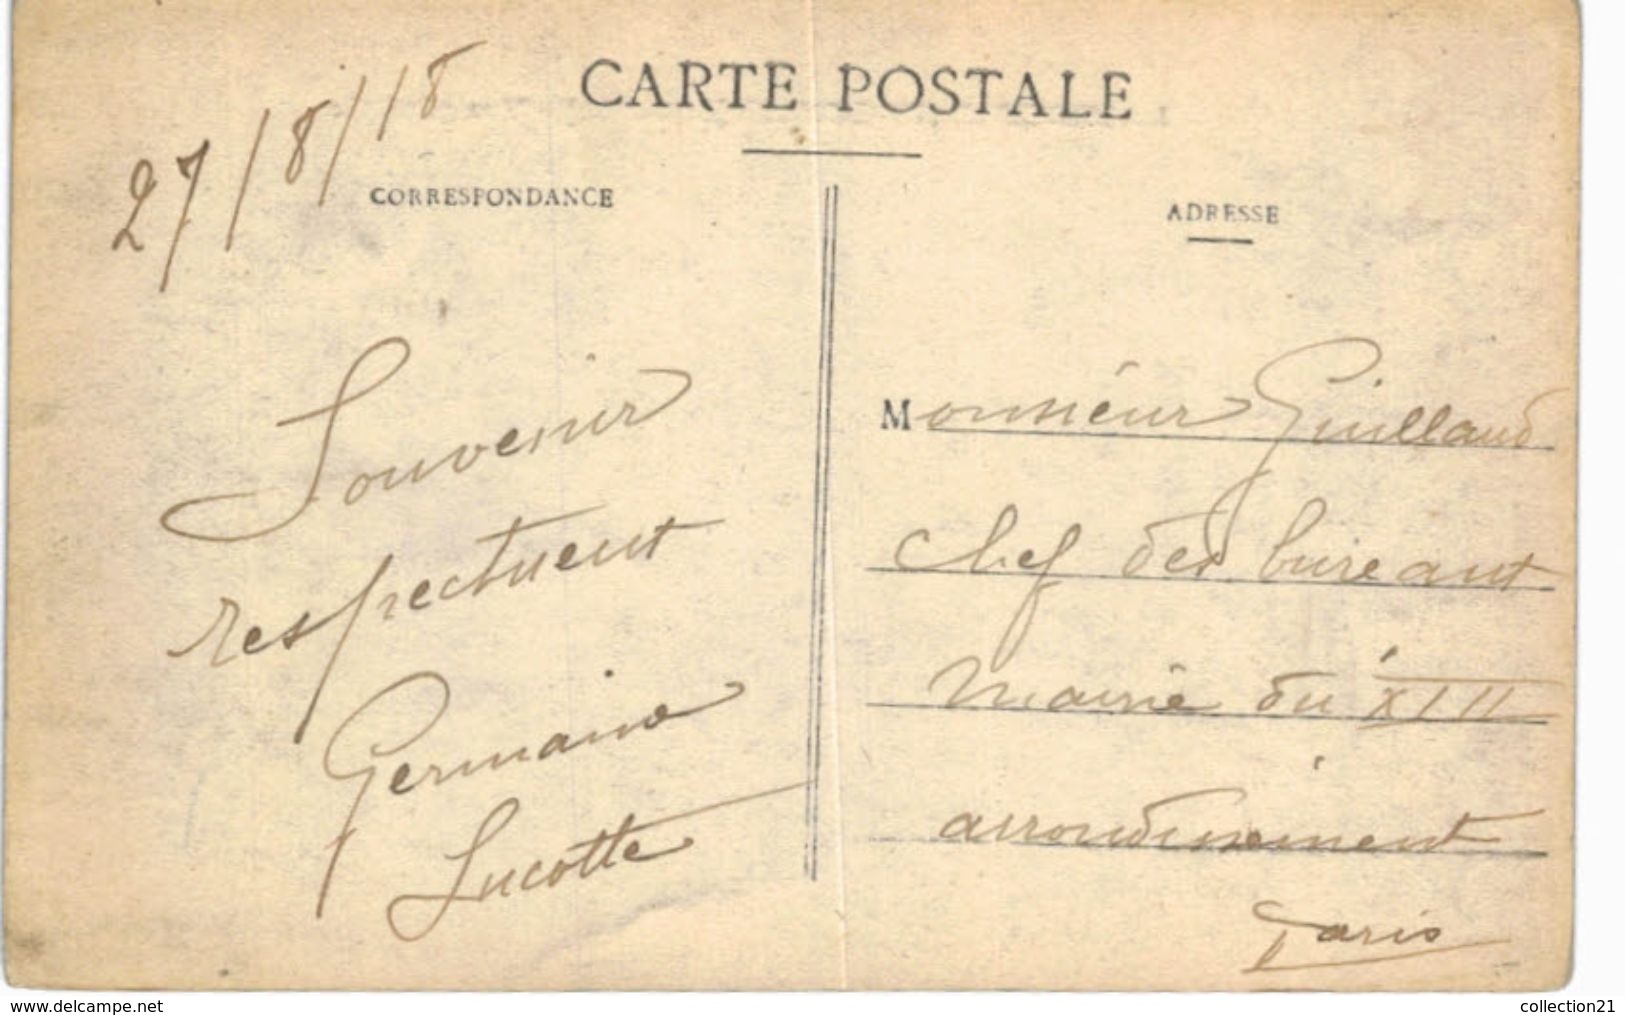 CARTE POSTALE
27/8/18
CORRESPONDANCE
ADRESSE
Souvenir
respectueux
Germaine
Lucotte
Monsieur Guillaud
chef des bureaux
Mairie du XIII
arrondissement
Paris
www.delcampe.net
collection21